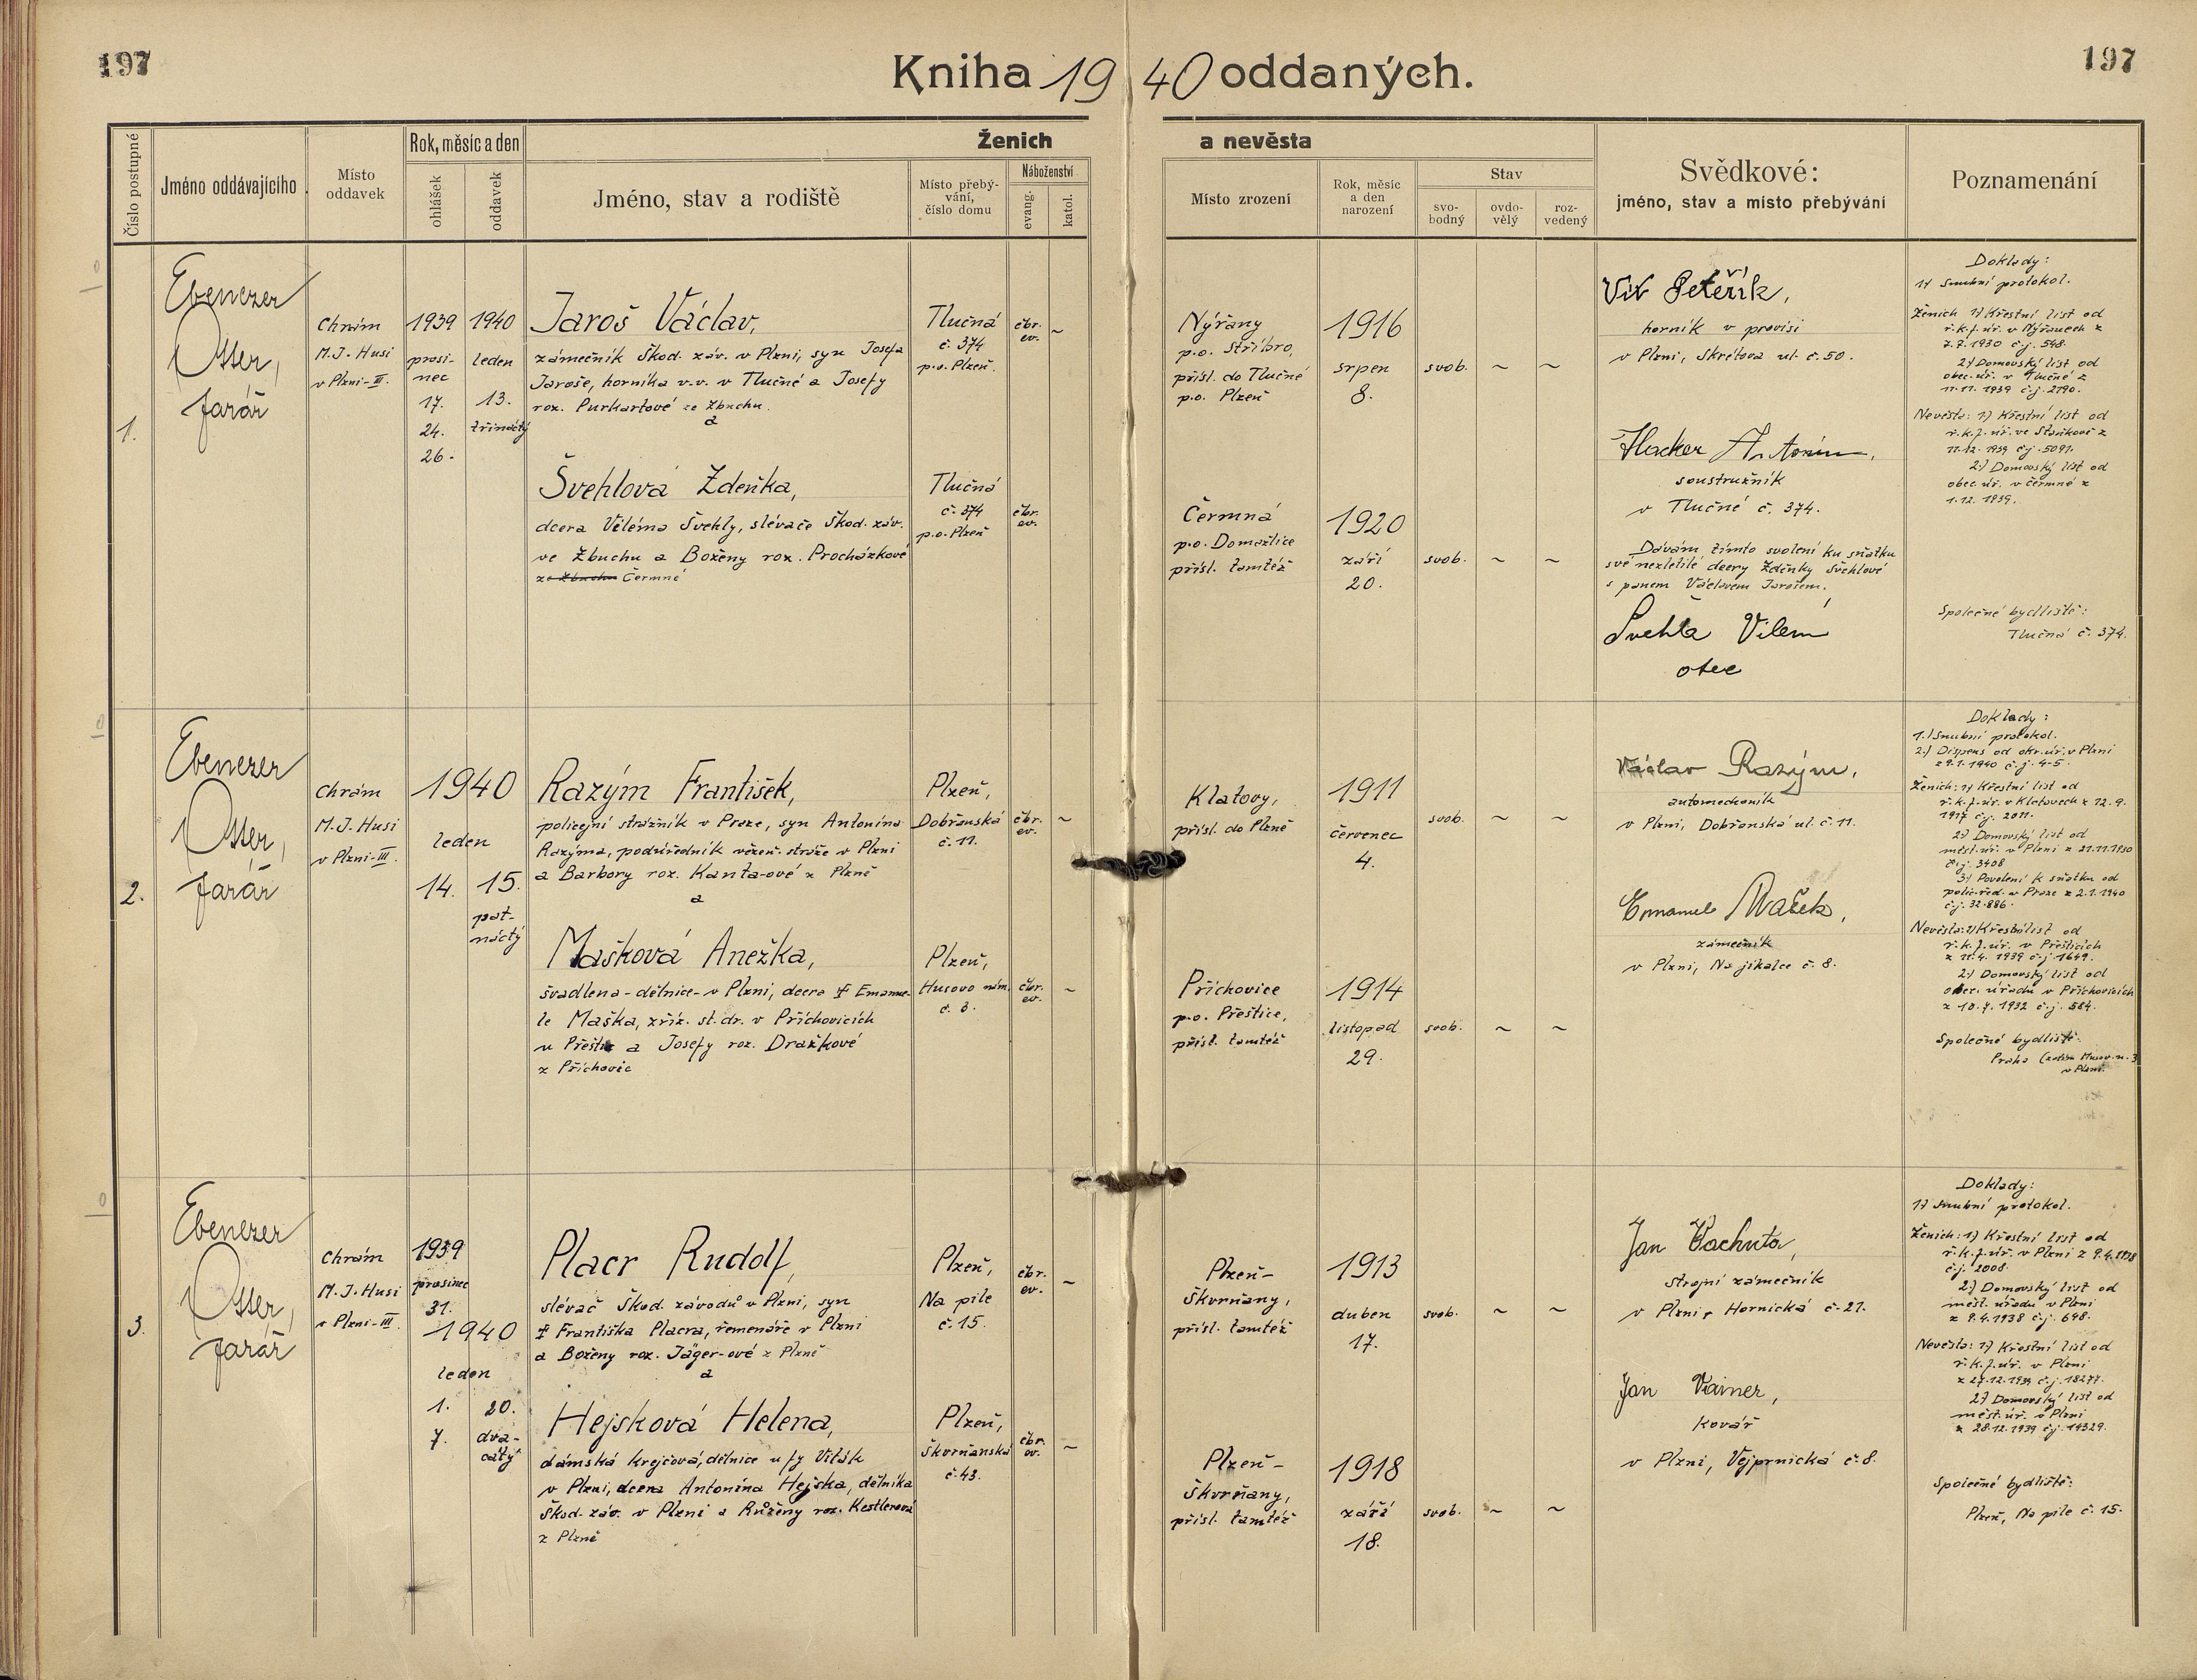 197
Kniha 1940 oddaných.
197
Číslo postupné
Jméno oddávajícího
Místo oddavek
Rok, měsíc a den
ohlášek
oddavek
Ženich
a nevěsta
Jméno, stav a rodiště
Místo přebý-
vání,
číslo domu
Náboženství
evang.
katol.
Místo zrození
Rok, měsíc
a den
narození
Stav
svo-
bodný
ovdo-
vělý
roz-
vedený
Svědkové:
jméno, stav a místo přebývání
Poznamenání
1.
Ebenezer
Otter,
farář
Chrám
M.J. Husi
v Plzni-III.
1939
prosi-
nec
17.
24.
26.
1940
leden
13.
třináctý
Jaroš Václav,
zámečník Škod. záv. v Plzni, syn Josefa
Jaroše, horníka v.v. v Tlučné a Josefy
roz. Purkartové ze Zbuchu.
a
Tlučná
č. 374
p.o. Plzeň.
čbr.
ev.
~
Nýřany
p.o. Stříbro,
přísl. do Tlučné
p.o. Plzeň
1916
srpen
8.
svob.
~
~
Švehlová Zdeňka,
dcera Viléma Švehly, slévače Škod. záv.
ve Zbuchu a Boženy roz. Procházkové
ze Zbuchu Čermné
Tlučná
č. 374
p.o. Plzeň
čbr.
ev.
Čermná
p.o. Domažlice
přísl. tamtéž
1920
září
20.
svob.
~
~
Vít Peteřík,
horník v provisi
v Plzni, Skrétova ul. č. 50.
Hacker Antonín,
soustružník
v Tlučné č. 374.
Dávám tímto svolení ku sňatku
své nezletilé dcery Zdeňky Švehlové
s panem Václavem Jarošem.
Švehla Vilém
otec
Doklady:
1) Snubní protokol.
Ženich 1) Křestní list od
ř.k.f.úř. v Nýřanech z
7.7.1930 č.j. 548.
2) Domovský list od
obec.úř. v Tlučné z
11.11. 1939 č.j. 2190.
Nevěsta: 1) Křestní list od
ř.k.f.úř. ve Staňkově z
11.12. 1939 č.j. 5091.
2) Domovský list od
obec.úř. v Čermné z
1.12. 1939.
Společné bydliště:
Tlučná č. 374.
2.
Ebenezer
Otter,
farář
Chrám
M.J. Husi
v Plzni-III.
1940
leden
14. 15.
pat-
náctý
Razým František,
policejní strážník v Praze, syn Antonína
Razýma, podúředník vězeň. stráže v Plzni
a Barbory roz. Kanta-ové z Plzně
a
Plzeň,
Dobřanská
č. 11.
čbr.
ev.
~
Klatovy,
přísl. do Plzně
1911
červenec
4.
svob.
~
~
Mašková Anežka,
švadlena - dělnice - v Plzni, dcera † Emanue-
le Maška, zříz. st. dr. v Příchovicích
u Přeštic a Josefy roz. Dražkové
z Příchovic
Plzeň,
Husovo nám.
č. 3.
čbr.
ev.
~
Příchovice
p.o. Přeštice,
přísl. tamtéž
1914
listopad
29.
svob.
~
~
Václav Razým,
automechanik
v Plzni, Dobřanská ul. č. 11.
Emanuel Mašek,
zámečník
v Plzni, Na jíkalce č. 8.
Doklady:
1.) Snubní protokol.
2.) Dispens od okr.úř. v Plzni
z 9.1.1940 č.j. 4-5.
Ženich: 1) Křestní list od
ř.k.f.úř. v Klatovech z 12.9.
1917 č.j. 2011.
2) Domovský list od
měst.úř. v Plzni z 21.11.1930
č.j. 3408
3) Povolení k sňatku od
polic.řed. v Praze z 2.1.1940
č.j. 32.886.
Nevěsta: 1) Křestní list od
ř.k.f.úř. v Přešticích
z 11.4. 1939 č.j. 1649.
2) Domovský list od
obec. úřadu v Příchovicích
z 10.7. 1932 č.j. 584.
Společné bydliště:
Praha (zatím Husov. n. 3
v Plzni.
3.
Ebenezer
Otter,
farář
Chrám
M.J. Husi
v Plzni-III.
1939
prosinec
31.
1940
leden
1. 20.
7. dva-
cátý
Placr Rudolf,
slévač Škod. závodů v Plzni, syn
† Františka Placra, řemenáře v Plzni
a Boženy roz. Jäger-ové z Plzně
a
Plzeň,
Na pile
č. 15.
čbr.
ev.
~
Plzeň-
Škvrňany,
přísl. tamtéž
1913
duben
17.
svob.
~
~
Hejsková Helena,
dámská krejčová, dělnice u fy Viták
v Plzni, dcera Antonína Hejska, dělníka
Škod. záv. v Plzni a Růženy roz. Kestlerová
z Plzně
Plzeň,
Škvrňanská
č. 43.
čbr.
ev.
~
Plzeň-
Škvrňany,
přísl. tamtéž
1918
září
18.
svob.
~
~
Jan Vachuta,
strojní zámečník
v Plzni, Hornická č. 21.
Jan Vainer,
kovář
v Plzni, Vejprnická č. 8.
Doklady:
1) Snubní protokol.
Ženich: 1) Křestní list od
ř.k.f.úř. v Plzni z 9.4.1938
č.j. 2008.
2) Domovský list od
měst. úřadu v Plzni
z 9.4.1938 č.j. 698.
Nevěsta: 1) Křestní list od
ř.k.f.úř. v Plzni
z 27.12.1939 č.j. 18277.
2) Domovský list od
měst.úř. v Plzni
z 28.12.1939 č.j. 14329.
Společné bydliště:
Plzeň, Na pile č. 15.